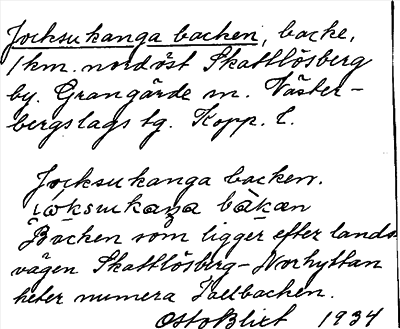 Jocksukanga backen, backe,
1 km. nordöst Skattlösberg
by. Grangärde sn. Väster-
bergslags tg. Kopp. l.
Jocksukanga backen.
Backen som ligger efter lands
vägen Skattlösberg-Norhyttan
heter numera Tallbacken.
Otto Blixt 1934